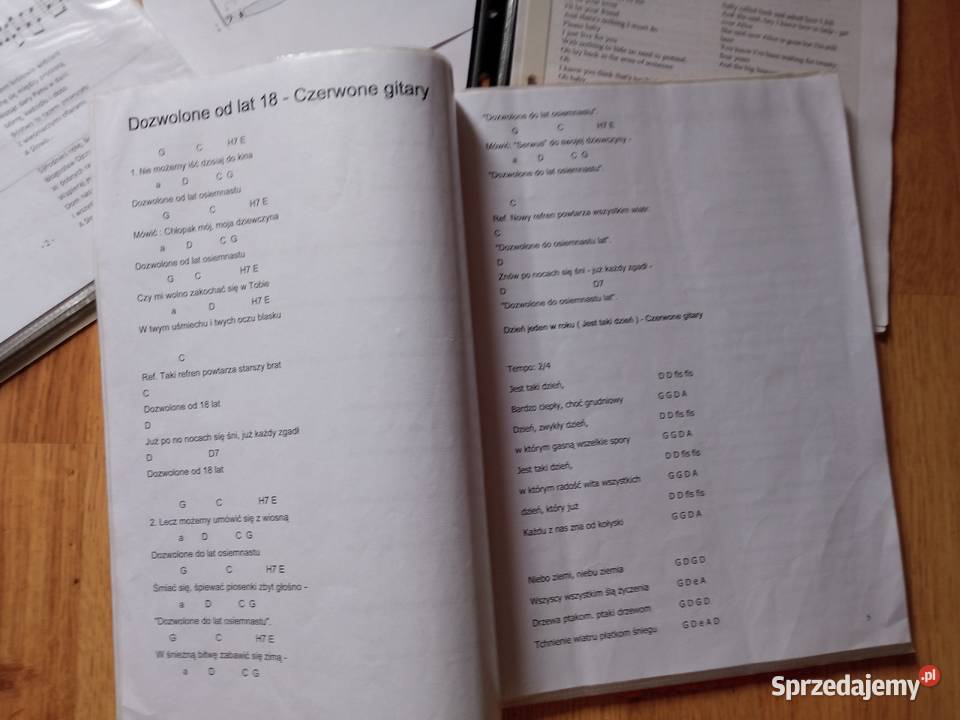 Dozwolone od lat 18 - Czerwone gitary
G C H7 E
1. Nie możemy iść dzisiaj do kina
a D C G
Dozwolone od lat osiemnastu
G C H7 E
Mówić : Chłopak mój, moja dziewczyna
a D C G
Dozwolone od lat osiemnastu
G C H7 E
Czy mi wolno zakochać się w Tobie
a D H7 E
W twym uśmiechu i twych oczu blasku
C
Ref. Taki refren powtarza starszy brat
C
Dozwolone od 18 lat
D
Już po no nocach się śni, już każdy zgadł
D D7
Dozwolone od 18 lat
G C H7 E
2. Lecz możemy umówić się z wiosną
a D C G
Dozwolone do lat osiemnastu
G C H7 E
Śmiać się, śpiewać piosenki zbyt głośno -
a D C G
"Dozwolone do lat osiemnastu".
G C H7 E
W śnieżną bitwę zabawić się zimą -
a D C G
"Dozwolone do lat osiemnastu".
G C H7 E
Mówić: "Serwus" do swojej dziewczyny -
a D C G
"Dozwolone do lat osiemnastu".
C
Ref. Nowy refren powtarza wszystkim wiatr:
C
"Dozwolone do osiemnastu lat".
D
Znów po nocach się śni - już każdy zgadł -
D D7
"Dozwolone do osiemnastu lat".
Dzień jeden w roku ( Jest taki dzień ) - Czerwone gitary
Tempo: 2/4
Jest taki dzień, D D fis fis
Bardzo ciepły, choć grudniowy G G D A
Dzień, zwykły dzień, D D fis fis
w którym gasną wszelkie spory G G D A
Jest taki dzień, D D fis fis
w którym radość wita wszystkich G G D A
dzień, który już D D fis fis
Każdu z nas zna od kołyski G G D A
Niebo ziemi, niebu ziemia G D G D
Wszyscy wszystkim ślą życzenia G D e A
Drzewa ptakom. ptaki drzewom G D G D
Tchnienie wiatru płatkom śniegu G D e A D
5
Sprzedajemy.pl